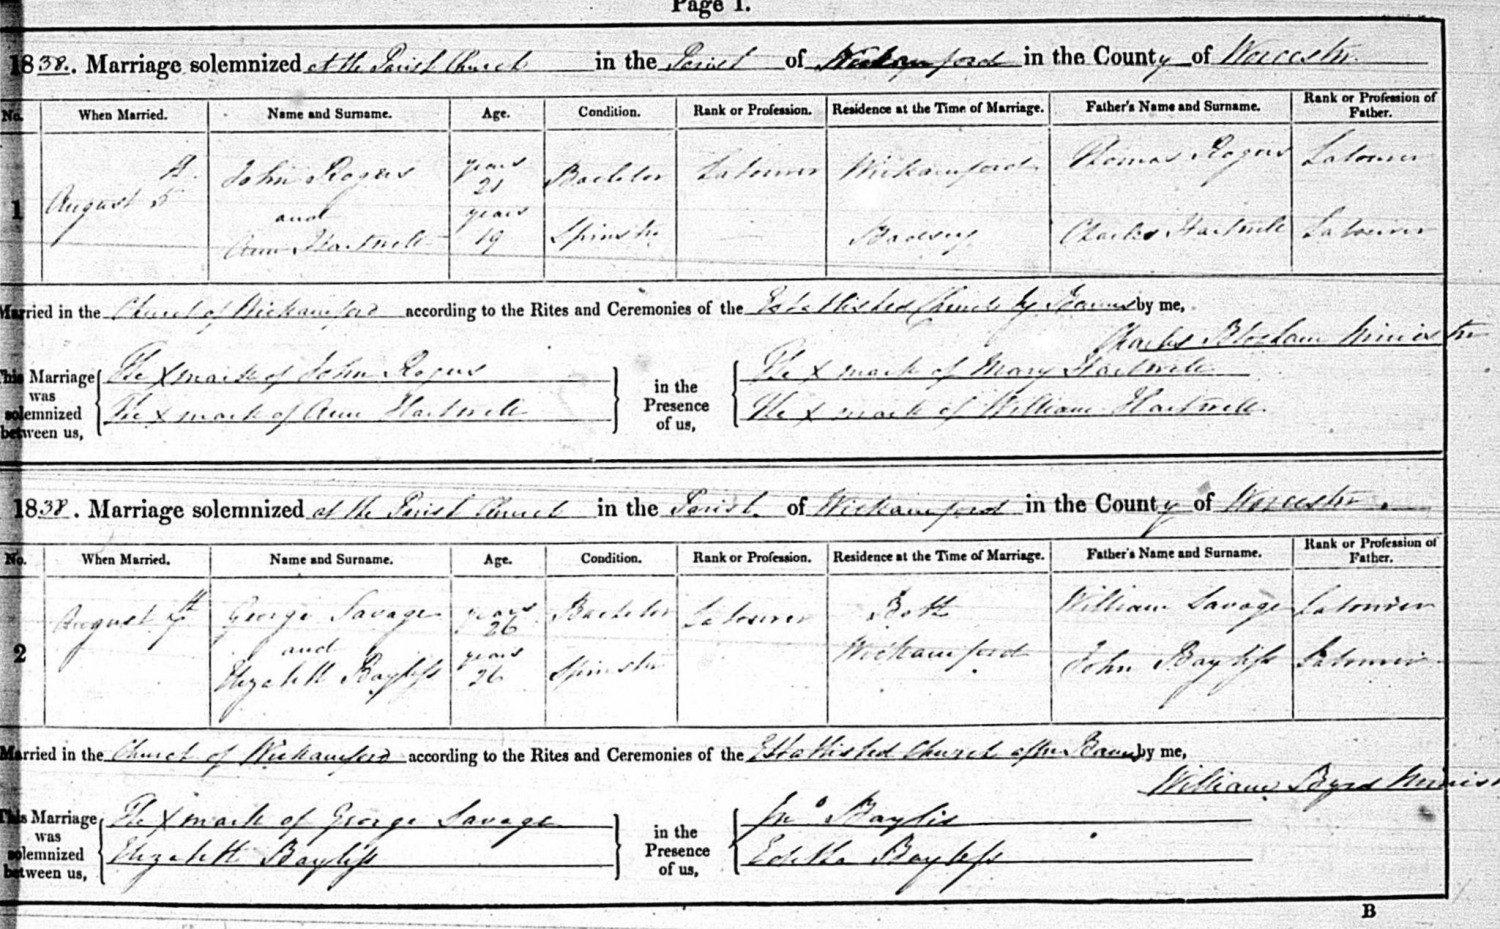 Page 1.
1838. Marriage solemnized at the Parish Church in the Parish of Wickamford in the County of Worcester
No. When Married. Name and Surname. Age. Condition. Rank or Profession. Residence at the Time of Marriage. Father's Name and Surname. Rank or Profession of Father.
1 August 5th John Rogers years 21 Bachelor Labourer Wickamford Thomas Rogers Labourer
and
Ann Hartwell years 19 Spinster Badsey Charles Hartwell Labourer
Married in the Church of Wickamford according to the Rites and Ceremonies of the Established Church by Banns by me,
Charles Bloxham Minister
This Marriage was solemnized between us, The X mark of John Rogers
The X mark of Ann Hartwell
in the Presence of us, The X mark of Mary Hartwell
The X mark of William Hartwell
1838. Marriage solemnized at the Parish Church in the Parish of Wickamford in the County of Worcester.
No. When Married. Name and Surname. Age. Condition. Rank or Profession. Residence at the Time of Marriage. Father's Name and Surname. Rank or Profession of Father.
2 August th George Savage years 26 Bachelor Labourer Both William Savage Labourer
and
Elizabeth Bayliss years 26 Spinster Wickamford John Bayliss Labourer
Married in the Church of Wickamford according to the Rites and Ceremonies of the Established Church after Banns by me,
William Byrd Minis
This Marriage was solemnized between us, The X mark of George Savage
Elizabeth Bayliss
in the Presence of us, Jno Baylis
Bayliss
B